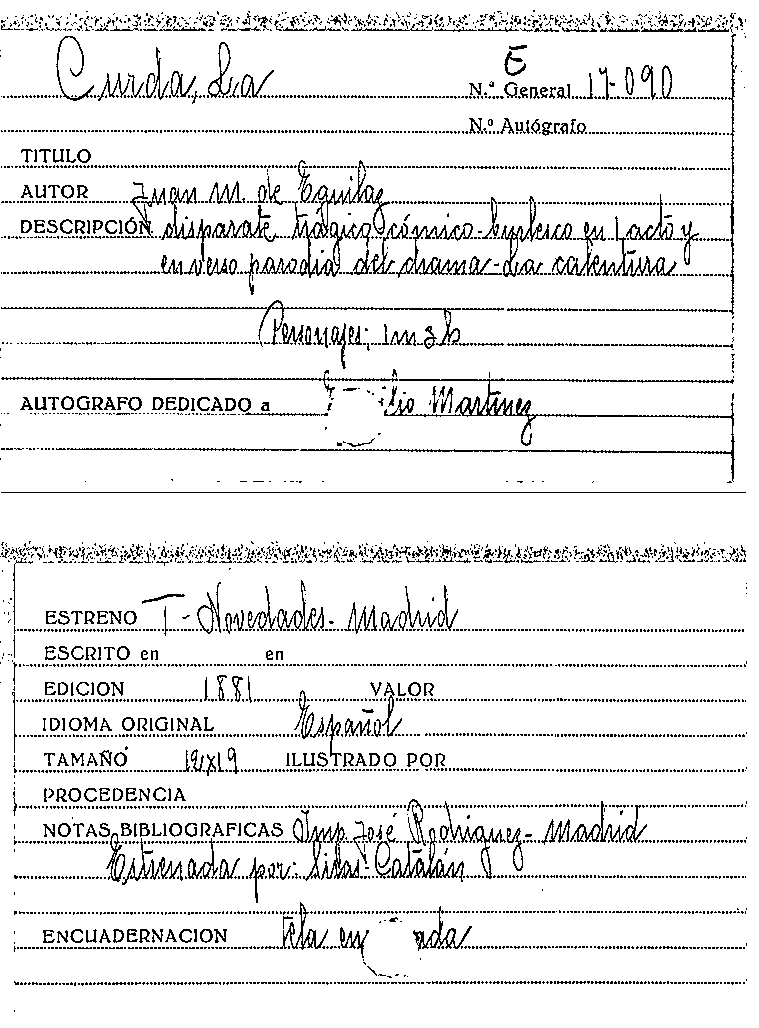 E
Curda, La
N.º General 17-090
N.º Autógrafo
TITULO
AUTOR Juan M. de Eguilaz
DESCRIPCIÓN disparate trágico cómico-burlesco en 1 acto y
en verso parodia del drama-La calentura
Personajes; 1m 3h
AUTOGRAFO DEDICADO a Martínez
ESTRENO T-Novedades. Madrid
ESCRITO en en
EDICION 1881 VALOR
IDIOMA ORIGINAL Español
TAMAÑO 12x19 ILUSTRADO POR
PROCEDENCIA
NOTAS BIBLIOGRAFICAS Imp. José Rodriguez- Madrid
Estrenada por: Silas-Catalán
ENCUADERNACION Tela